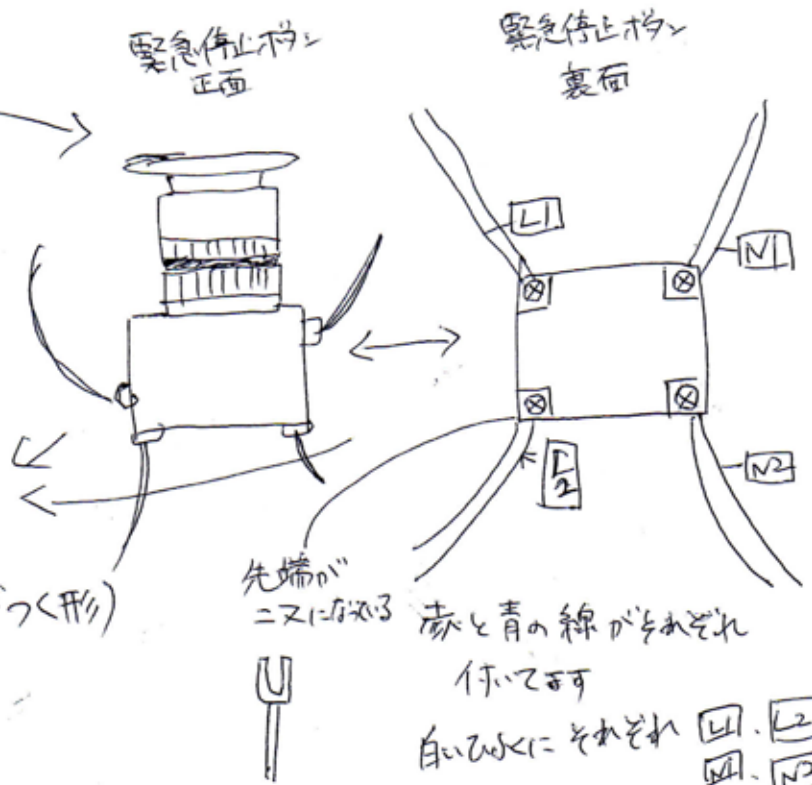 緊急停止ボタン
正面
緊急停止ボタン
裏面
L1
N1
L2
N2
つく形)
先端が
二又になっている
赤と青の線がそれぞれ
付いてます
それぞれ L1、L2
N1、N2